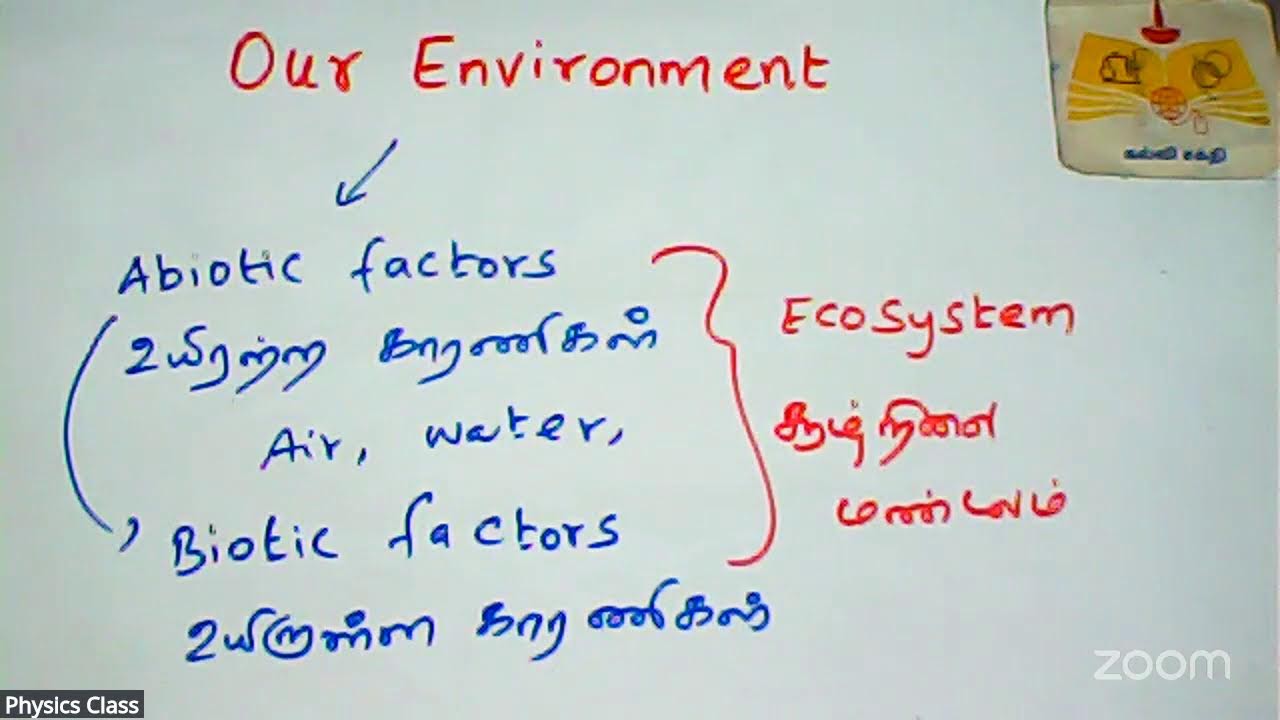 Our Environment
கல்வி சக்தி
Abiotic factors
உயிரற்ற காரணிகள்
Air, water,
Biotic factors
உயிருள்ள காரணிகள்
Ecosystem
சூழ்நிலை
மண்டலம்
zoom
Physics Class